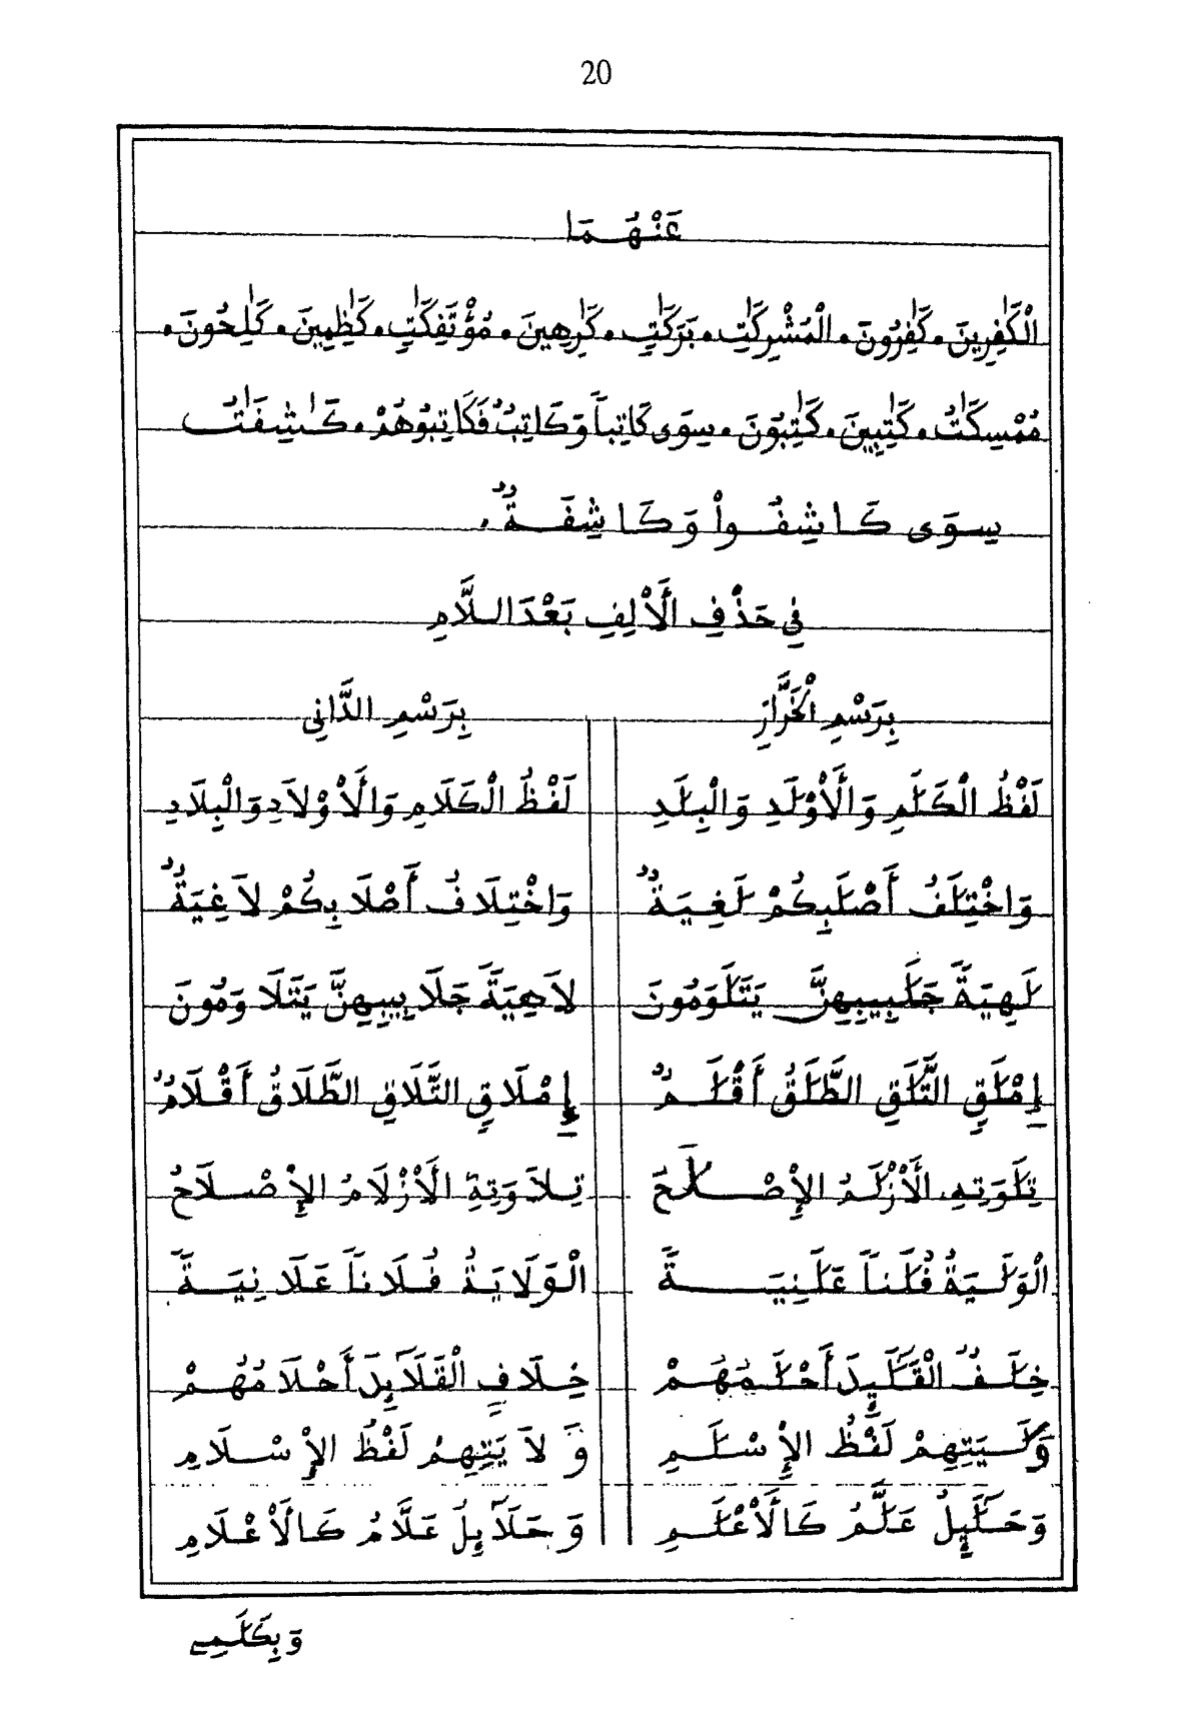 20
عَنْهُمَا
الْكَٰفِرِينَ . كَٰفِرُونَ . الْمُشْرِكَٰتِ . بَرَكَٰتٍ . كَٰرِهِينَ . مُؤْتَفِكَٰتِ . كَٰظِمِينَ . كَٰلِحُونَ .
مُمْسِكَٰتُ . كَٰتِبِينَ . كَٰتِبُونَ . سِوَى كَاتِباً وَكَاتِبٌ فَكَاتِبُوهُمْ . كَٰشِفَٰتُ
سِوَى كَاشِفُواْ وَكَاشِفَةٌ .
فِي حَذْفِ الْأَلِفِ بَعْدَ اللَّامِ
بِرَسْمِ الْخَرَّازِ بِرَسْمِ الدَّانِي
لَفْظُ الْكَلَٰمِ وَالْأَوْلَٰدِ وَالْبِلَٰدِ لَفْظُ الْكَلَامِ وَالْأَوْلَادِ وَالْبِلَادِ
وَاخْتِلَٰفُ أَصْلَٰبِكُمْ لَٰغِيَةٌ وَاخْتِلَافُ أَصْلَابِكُمْ لَاغِيَةٌ
لَٰهِيَةً جَلَٰبِيبِهِنَّ يَتَلَٰوَمُونَ لَاهِيَةً جَلَابِيبِهِنَّ يَتَلَاوَمُونَ
إِمْلَٰقٍ التَّلَٰقِ الطَّلَٰقُ أَقْلَٰمٌ إِمْلَاقٍ التَّلَاقِ الطَّلَاقُ أَقْلَامٌ
تِلَٰوَتِهِ الْأَزْلَٰمُ الْإِصْلَٰحَ تِلَاوَتِهِ الْأَزْلَامُ الْإِصْلَاحُ
الْوَلَٰيَةُ فُلَٰناً عَلَٰنِيَةً الْوَلَايَةُ فُلَاناً عَلَانِيَةً
خِلَٰفٌ الْقَلَٰئِدَ أَحْلَٰمُهُمْ خِلَافٍ الْقَلَائِدَ أَحْلَامُهُمْ
وَلَٰيَتِهِمْ لَفْظُ الْإِسْلَٰمِ وَلَايَتِهِمُ لَفْظُ الْإِسْلَامِ
وَحَلَٰئِلُ عَلَّٰمُ كَالْأَعْلَٰمِ وَحَلَائِلُ عَلَّامُ كَالْأَعْلَامِ
وَبِكَلَٰمِي